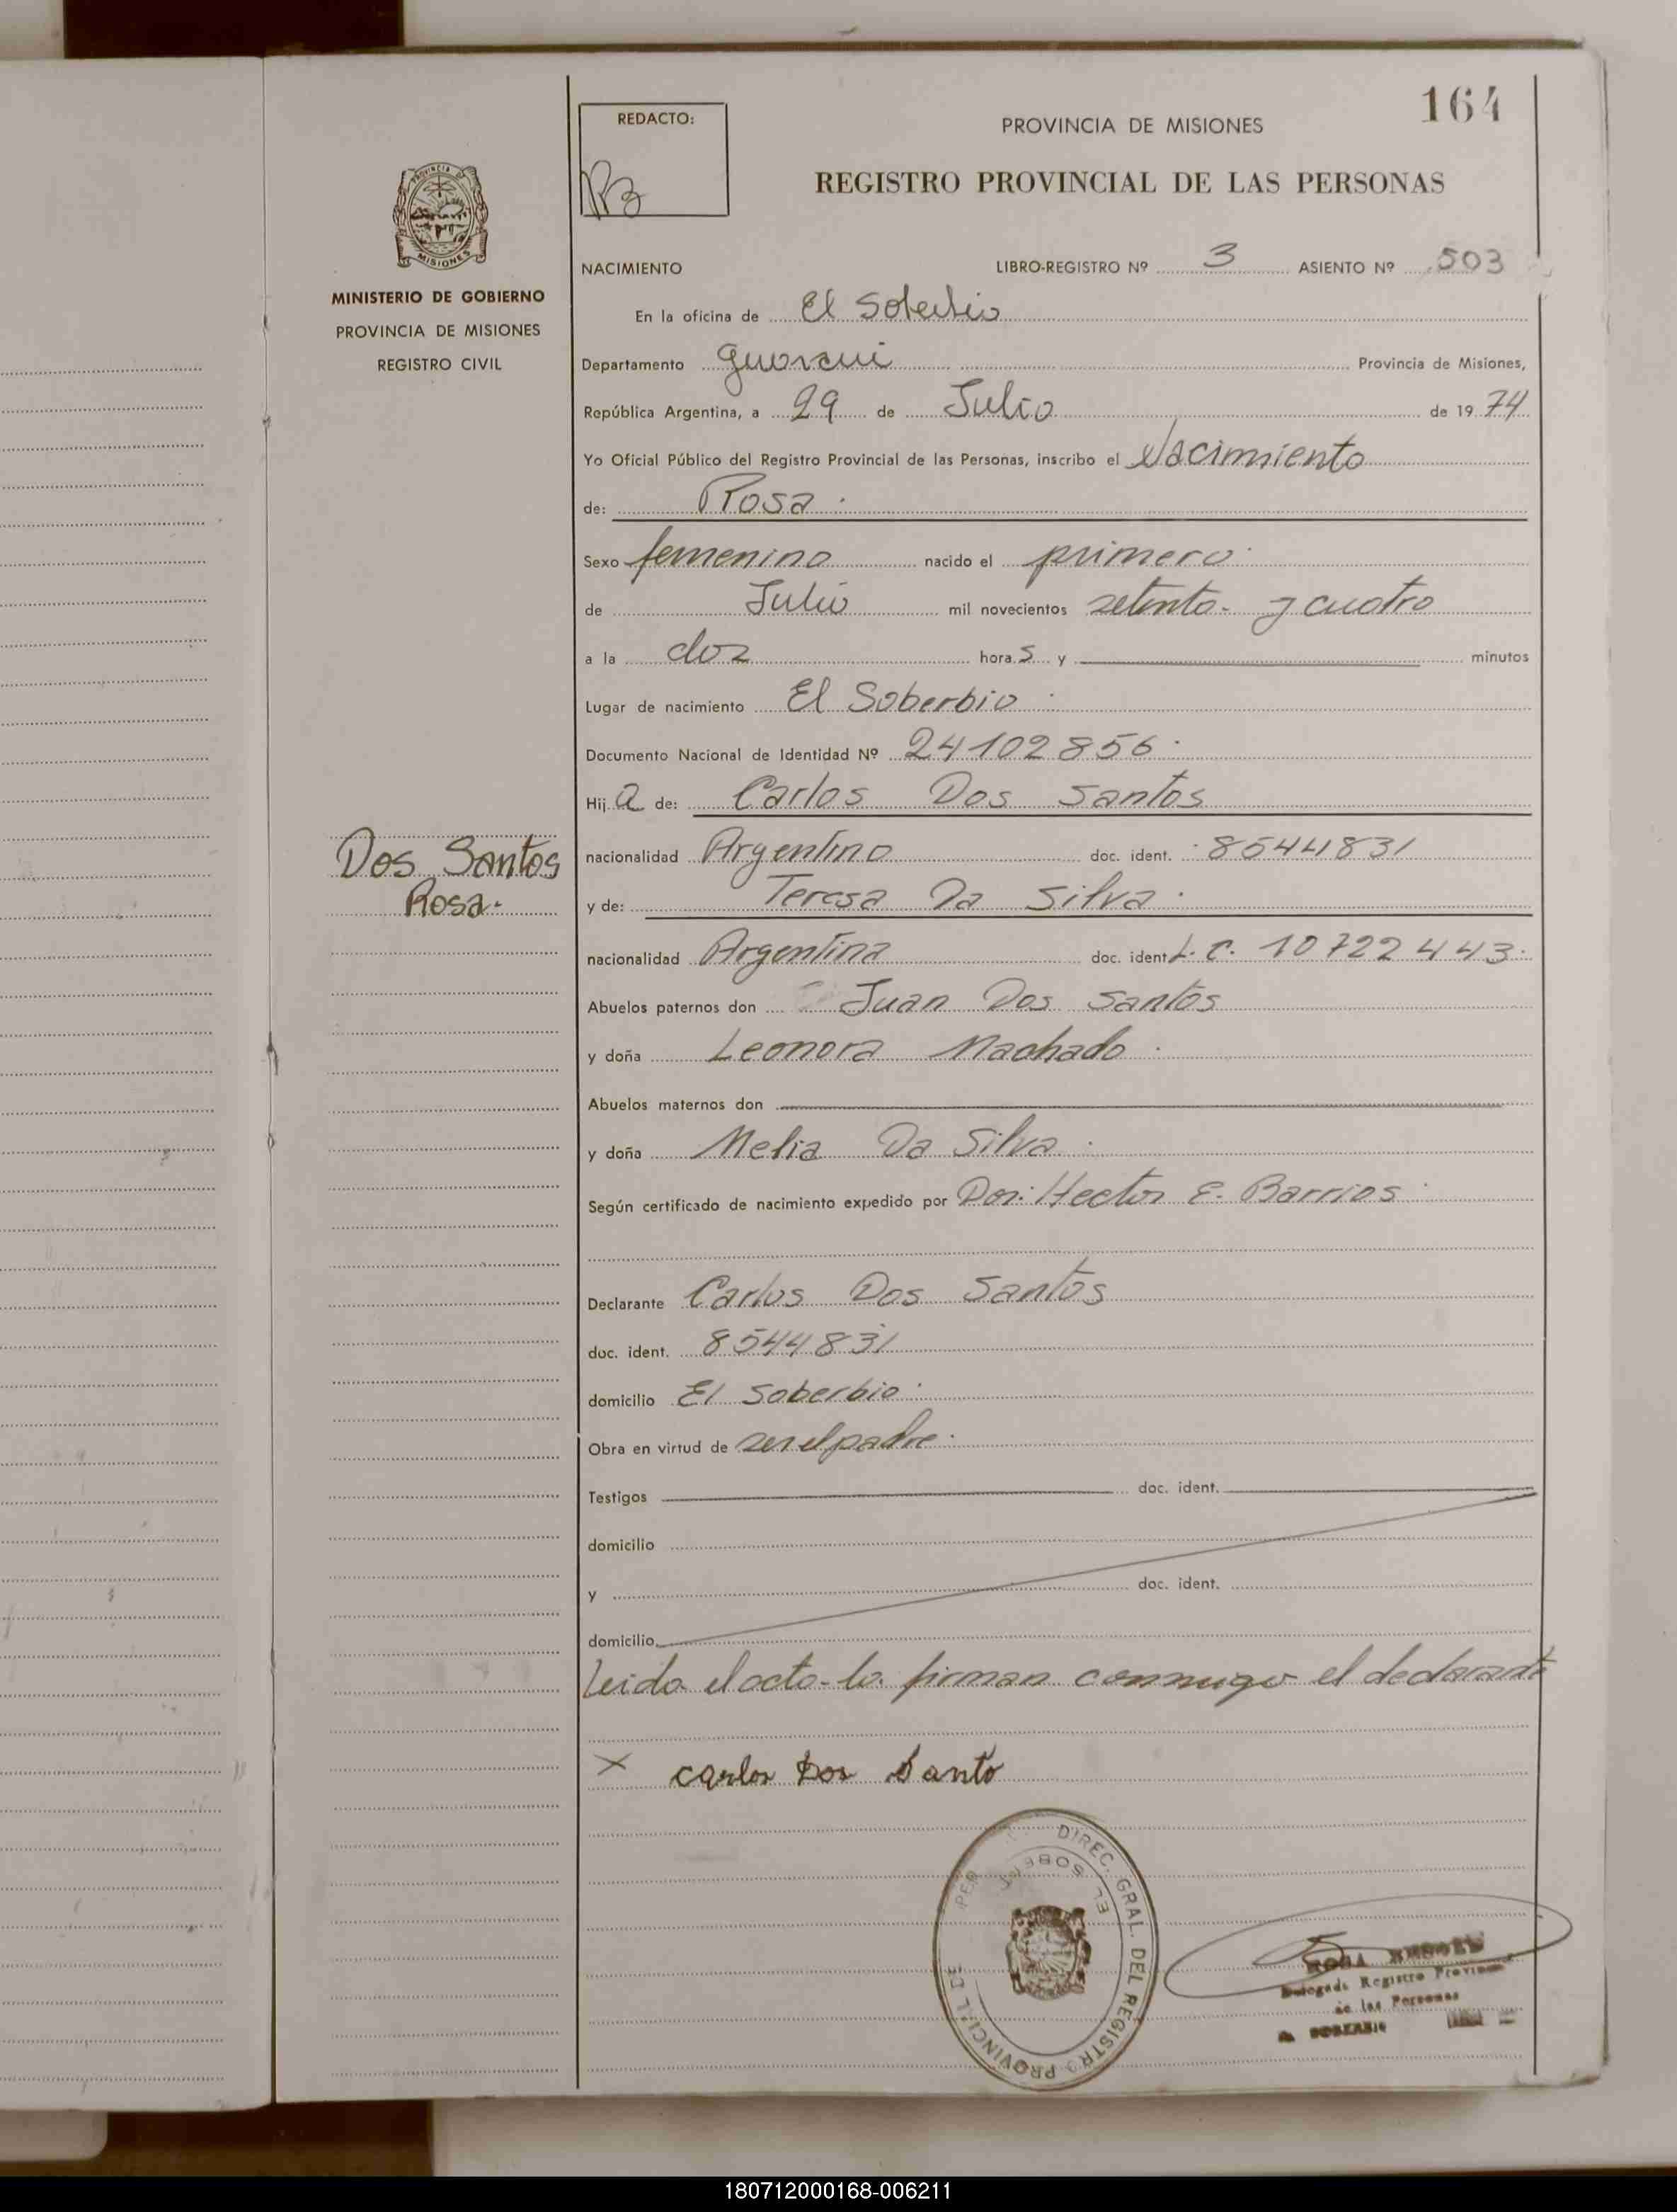 164
REDACTO:
PROVINCIA DE MISIONES
REGISTRO PROVINCIAL DE LAS PERSONAS
PROVINCIA DE
MISIONES
MINISTERIO DE GOBIERNO
PROVINCIA DE MISIONES
REGISTRO CIVIL
NACIMIENTO LIBRO-REGISTRO Nº 3 ASIENTO Nº 503
En la oficina de El Soberbio
Departamento Guarani Provincia de Misiones,
República Argentina, a 29 de Julio de 19 74
Yo Oficial Público del Registro Provincial de las Personas, inscribo el Nacimiento
de: Rosa.
Sexo femenino nacido el primero
de Julio mil novecientos setenta y cuatro
a la dos hora s y minutos
Lugar de nacimiento El Soberbio
Documento Nacional de Identidad Nº 24102856.
Hij a de: Carlos Dos Santos
Dos Santos
Rosa.
nacionalidad Argentino doc. ident. 8544831
y de: Teresa Da Silva.
nacionalidad Argentina doc. ident L.C. 10722443.
Abuelos paternos don Juan Dos Santos
y doña Leonora Machado.
Abuelos maternos don
y doña Melia Da Silva.
Según certificado de nacimiento expedido por Hector E. Barrios
Declarante Carlos Dos Santos
doc. ident. 8544831
domicilio El Soberbio.
Obra en virtud de ser el padre.
Testigos doc. ident.
domicilio
y doc. ident.
domicilio
leida el acta la firman conmigo el declarante
X carlos Dos Santo
DIREC. GRAL. DEL REGISTRO PROVINCIAL DE
EL SOBER
ROSA
Delegada Registro Provincial
de las Personas
SOBERBIO
180712000168-006211